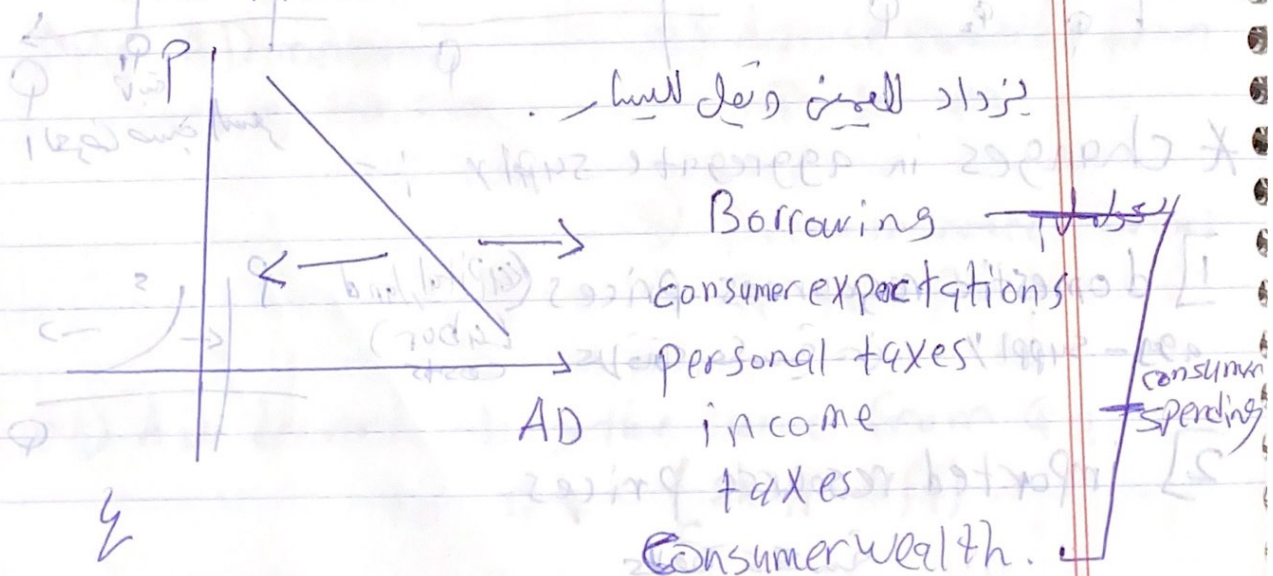 P
يزداد لليمين وتقل لليسار.
Borrowing
consumer expectations
personal taxes
income
taxes
Consumer wealth.
consumer
spending
AD